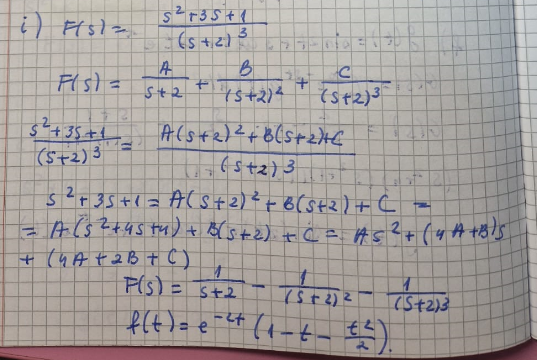 i) F(s) = \frac{s^2+3s+1}{(s+2)^3}
F(s) = \frac{A}{s+2} + \frac{B}{(s+2)^2} + \frac{C}{(s+2)^3}
\frac{s^2+3s+1}{(s+2)^3} = \frac{A(s+2)^2+B(s+2)+C}{(s+2)^3}
s^2+3s+1 = A(s+2)^2+B(s+2)+C =
= A(s^2+4s+4)+B(s+2)+C = As^2+(4A+B)s
+ (4A+2B+C)
F(s) = \frac{1}{s+2} - \frac{1}{(s+2)^2} - \frac{1}{(s+2)^3}
f(t) = e^{-2t} (1-t-\frac{t^2}{2}).